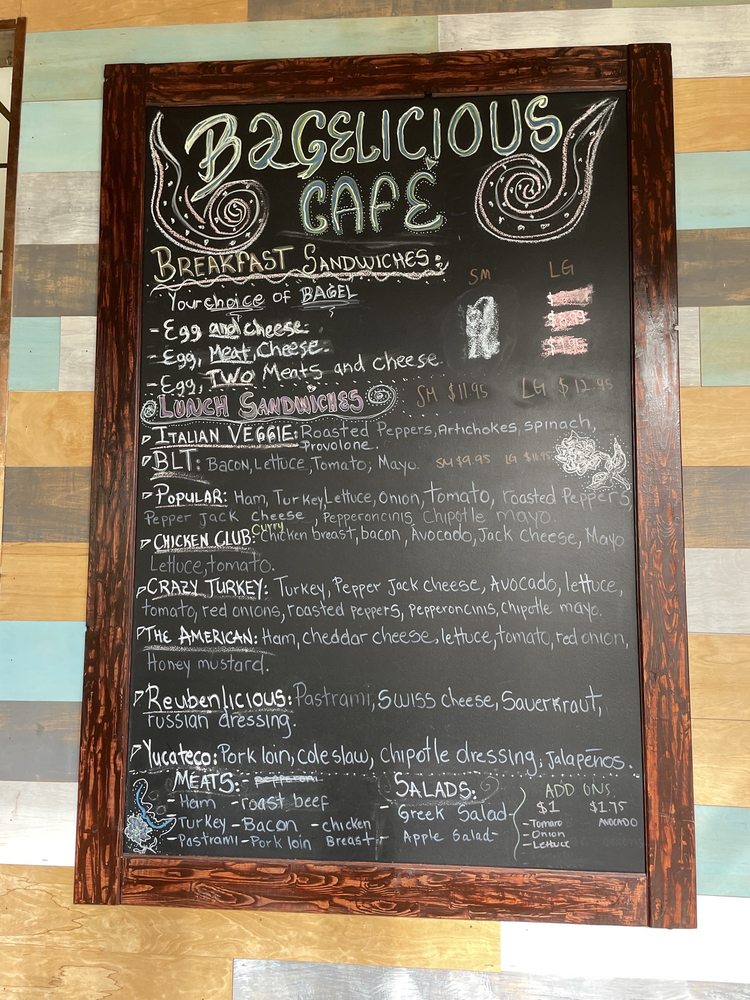 BAGELICIOUS
CAFÉ
BREAKFAST SANDWICHES:
SM LG
Your choice of BAGEL
- Egg and cheese.
- Egg, Meat, Cheese.
- Egg, TWO Meats and cheese
LUNCH SANDWICHES SM $11.95 LG $12.95
ITALIAN VEGGIE: Roasted Peppers, Artichokes, spinach,
Provolone.
BLT: Bacon, Lettuce, Tomato, Mayo. SM $9.95 LG
POPULAR: Ham, Turkey, Lettuce, Onion, tomato, roasted Peppers
Pepper jack cheese, Pepperoncinis Chipotle mayo.
Curry
CHICKEN CLUB: Chicken breast, bacon, Avocado, Jack Cheese, Mayo
Lettuce, tomato.
CRAZY TURKEY: Turkey, Pepper Jack cheese, Avocado, lettuce,
tomato, red onions, roasted peppers, Pepperoncinis, chipotle mayo.
THE AMERICAN: Ham, cheddar cheese, lettuce, tomato, red onion,
Honey mustard.
Reubenlicious: Pastrami, Swiss cheese, Sauerkraut,
russian dressing.
Yucateco: Pork loin, coleslaw, chipotle dressing, jalapeños.
MEATS: - pepperoni
- Ham - roast beef
- Turkey - Bacon - chicken
- Pastrami - Pork loin Breast
SALADS:
- Greek Salad
- Apple Salad
ADD ONS
$1 $1.75
- Tomato AVOCADO
- Onion
- Lettuce